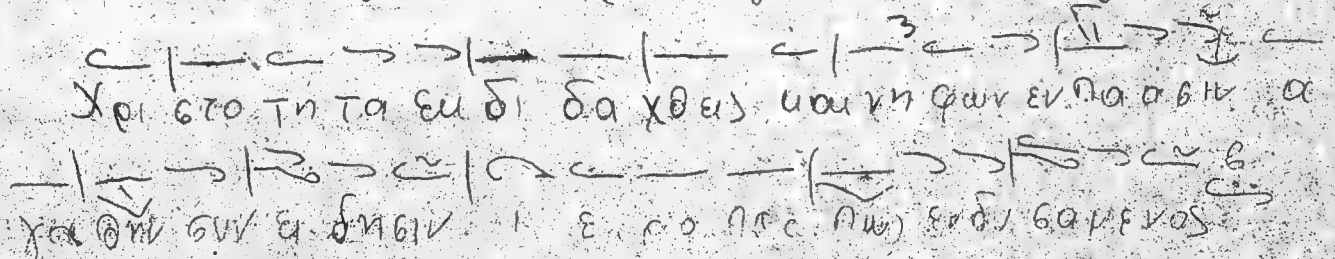 Χρι στο τη τα εκ δι δα χθεις και νη φων εν πα α σιν α
γα θην συν ει δη σιν ι ε ρο πρε πως εν δυ σα με νος